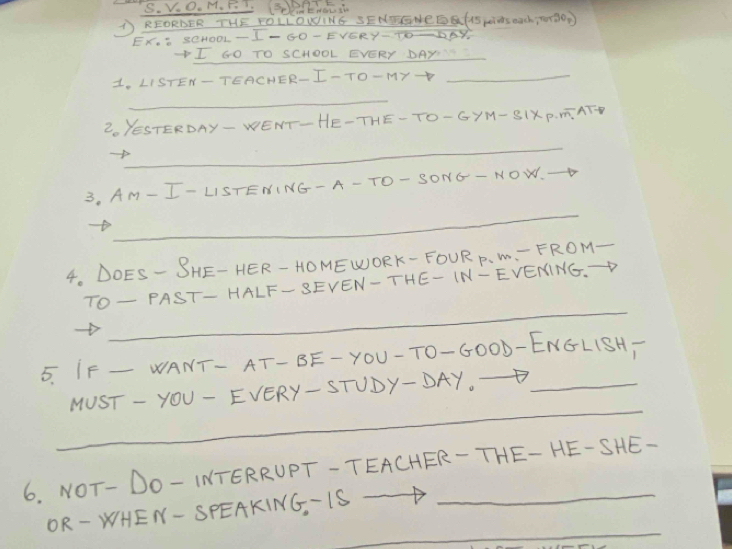 S.V.O.M.P.T. DATE:
IN ENGLISH
1) REORDER THE FOLLOWING (15 points each,
EX.: SCHOOL-I-GO-EVERY-TO-DAY.
→ I GO TO SCHOOL EVERY DAY
1. LISTEN-TEACHER-I-TO-MY →
2. YESTERDAY-WENT-HE-THE-TO-GYM-SIX p.m. AT→
→
3. AM-I-LISTENING-A-TO-SONG-NOW. →
→
4. DOES-SHE-HER-HOMEWORK-FOUR p.m.-FROM-
TO-PAST-HALF-SEVEN-THE-IN-EVENING. →
→
5. IF-WANT-AT-BE-YOU-TO-GOOD-ENGLISH,-
MUST-YOU-EVERY-STUDY-DAY. →
6. NOT-DO-INTERRUPT-TEACHER-THE-HE-SHE-
OR-WHEN-SPEAKING.-IS →